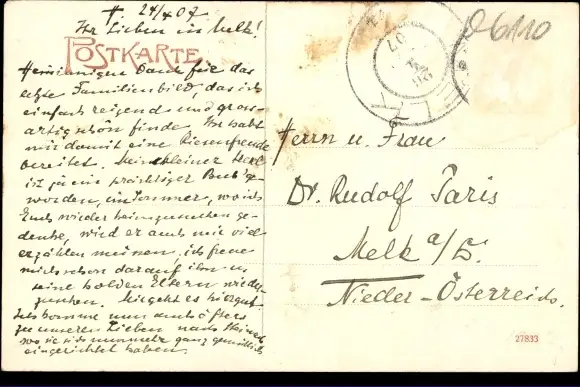 24/4 07
Ihr Lieben in Melk!
POSTKARTE
Herzinnigen Dank für das
letzte Familienbild, das ich
einfach reizend und gross-
artig schön finde. Ihr habt
mir damit eine Riesenfreude
bereitet. Mein kleiner Kerl
ist ja ein prächtiger Bub ge-
worden, im Sommer, wo ich
Euch wieder heimzusuchen ge-
denke, wird er auch mir viel
erzählen müssen, ich freue
mich schon darauf ihn u.
seine holden Eltern wieder-
zusehen. Mir geht es hier gut.
Ich komme nun auch öfters
zu unseren Lieben nach
wo sie sich nunmehr ganz gemütlich
eingerichtet haben.
06110
MELK
07
Herrn u. Frau
Dr. Rudolf Paris
Melk a/D.
Nieder-Österreich.
27833